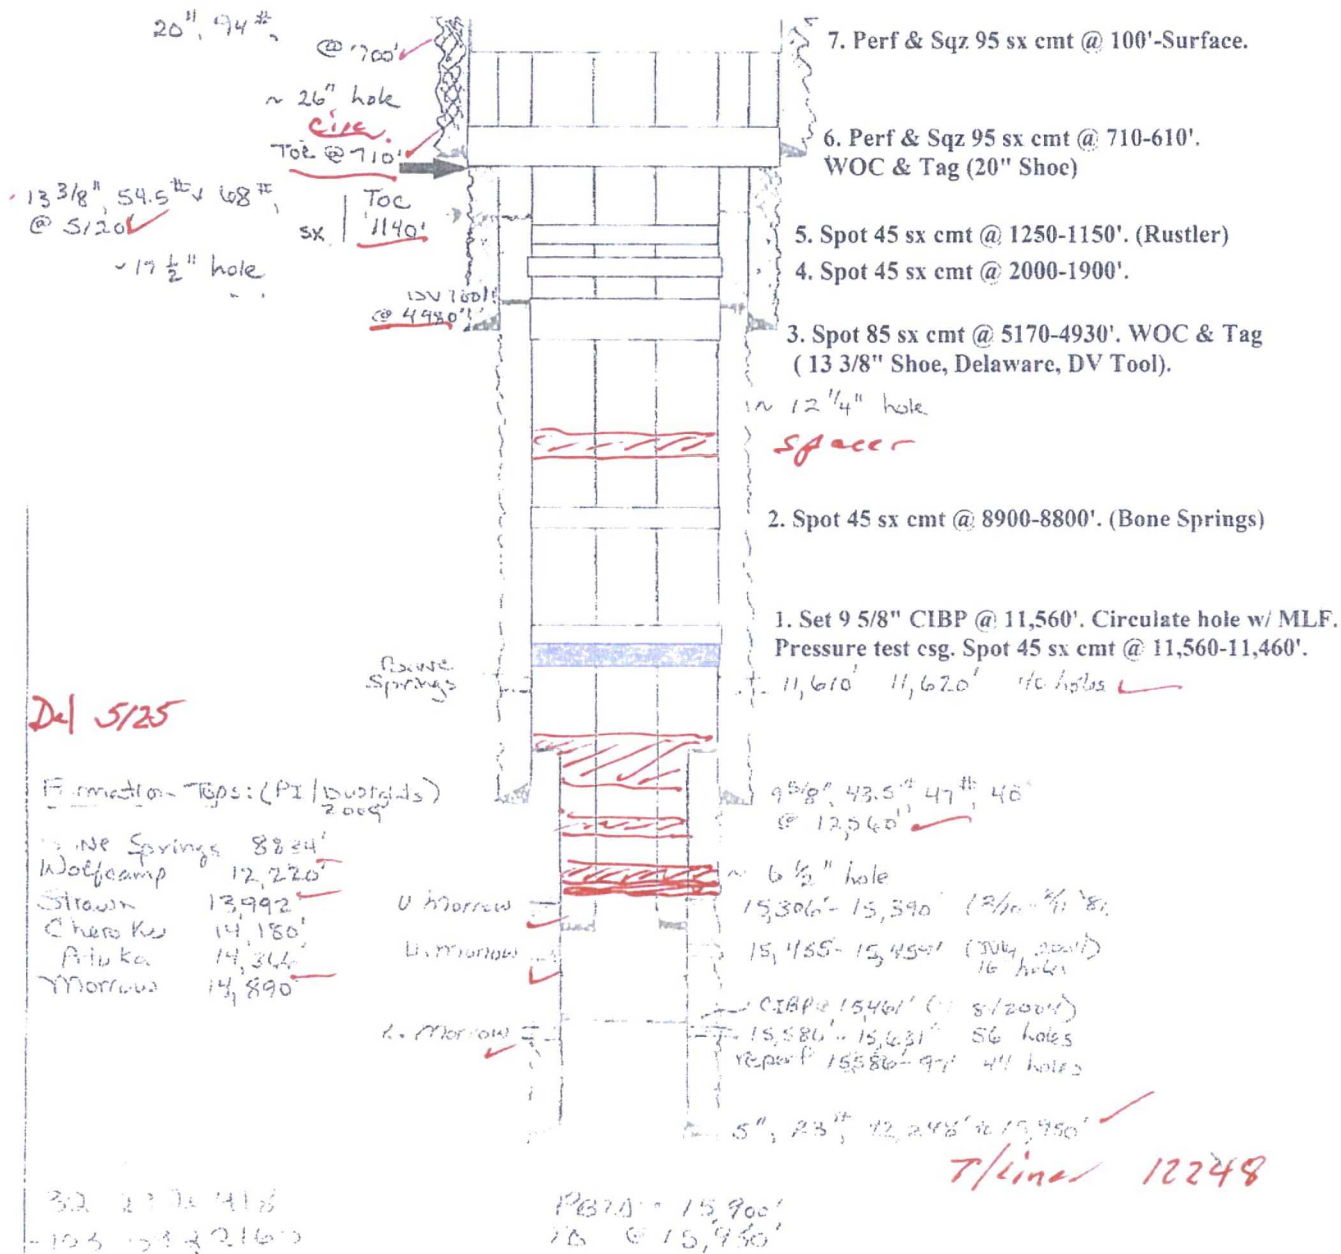 20", 94#,
@ 700'
~ 26" hole
circ
TOC @ 710'
13 3/8", 54.5# & 68#,
@ 5120'
~17 1/2" hole
sx
TOC
1140'
DV Tool
@ 4980'
7. Perf & Sqz 95 sx cmt @ 100'-Surface.
6. Perf & Sqz 95 sx cmt @ 710-610'.
WOC & Tag (20" Shoe)
5. Spot 45 sx cmt @ 1250-1150'. (Rustler)
4. Spot 45 sx cmt @ 2000-1900'.
3. Spot 85 sx cmt @ 5170-4930'. WOC & Tag
( 13 3/8" Shoe, Delaware, DV Tool).
~ 12 1/4" hole
spacer
2. Spot 45 sx cmt @ 8900-8800'. (Bone Springs)
1. Set 9 5/8" CIBP @ 11,560'. Circulate hole w/ MLF.
Pressure test csg. Spot 45 sx cmt @ 11,560-11,460'.
Bone
Springs
11,610' 11,620' 40 holes
Del 5125
Formation Tops: (PI/Dwights)
2009
Bone Springs 8834'
Wolfcamp 12,220'
Strawn 13,992'
Cherokee 14,180'
Atoka 14,366'
Morrow 14,890'
9 5/8", 43.5#, 47#, 40
@ 12,560'
~ 6 1/2" hole
U Morrow
15,306'- 15,390'
U. Morrow
15,455- 15,459' (July, 2004)
16 holes
CIBP @ 15,461' ( 8/2004)
L. Morrow
15,586'- 15,631' 56 holes
reperf 15,586-97' 44 holes
5", 23#, 12,248' to 15,950'
T/Liner 12248
PBTD - 15,900'
TD @ 15,950'